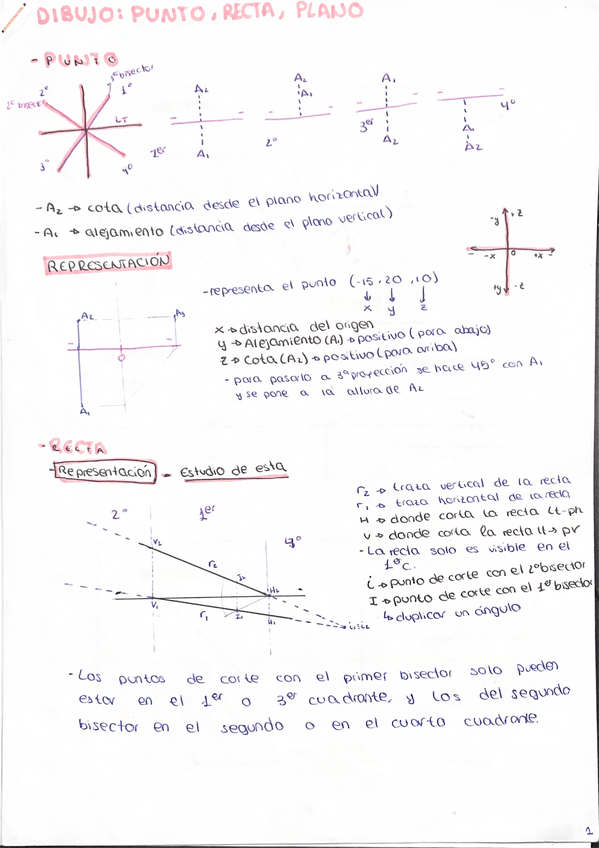 DIBUJO: PUNTO, RECTA, PLANO
- PUNTO
1º bisector
2º 1º
2º bisector
LT
3º 4º
A₂
A₁
1er
A₂
A₁
2º
A₁
A₂
3er
A₁
A₂
4º
- A₂ → cota (distancia desde el plano horizontal)
- A₁ → alejamiento (distancia desde el plano vertical)
-y +z
- -x 0 +x -
+y -z
REPRESENTACIÓN
- representa el punto (-15, 20, 10)
x y z
A₂ A₃
0
A₁
x → distancia del origen
y → Alejamiento (A₁) → positivo (para abajo)
z → cota (A₂) → positivo (para arriba)
- para pasarlo a 3ª proyección se hace 45º con A₁
y se pone a la altura de A₂
- RECTA
- Representación - Estudio de esta
r₂ → traza vertical de la recta
r₁ → traza horizontal de la recta
H → donde corta la recta Lt-ph
V → donde corta la recta lt → pv
- La recta solo es visible en el
1er c.
i → punto de corte con el 2º bisector
I → punto de corte con el 1er bisector
↳ duplicar un ángulo
2º 1er 4º
V₂ r₂ I₂ H₂
V₁ r₁ I₁ H₁ i₁=i₂
- Los puntos de corte con el primer bisector solo pueden
estar en el 1er o 3er cuadrante, y los del segundo
bisector en el segundo o en el cuarto cuadrante.
1